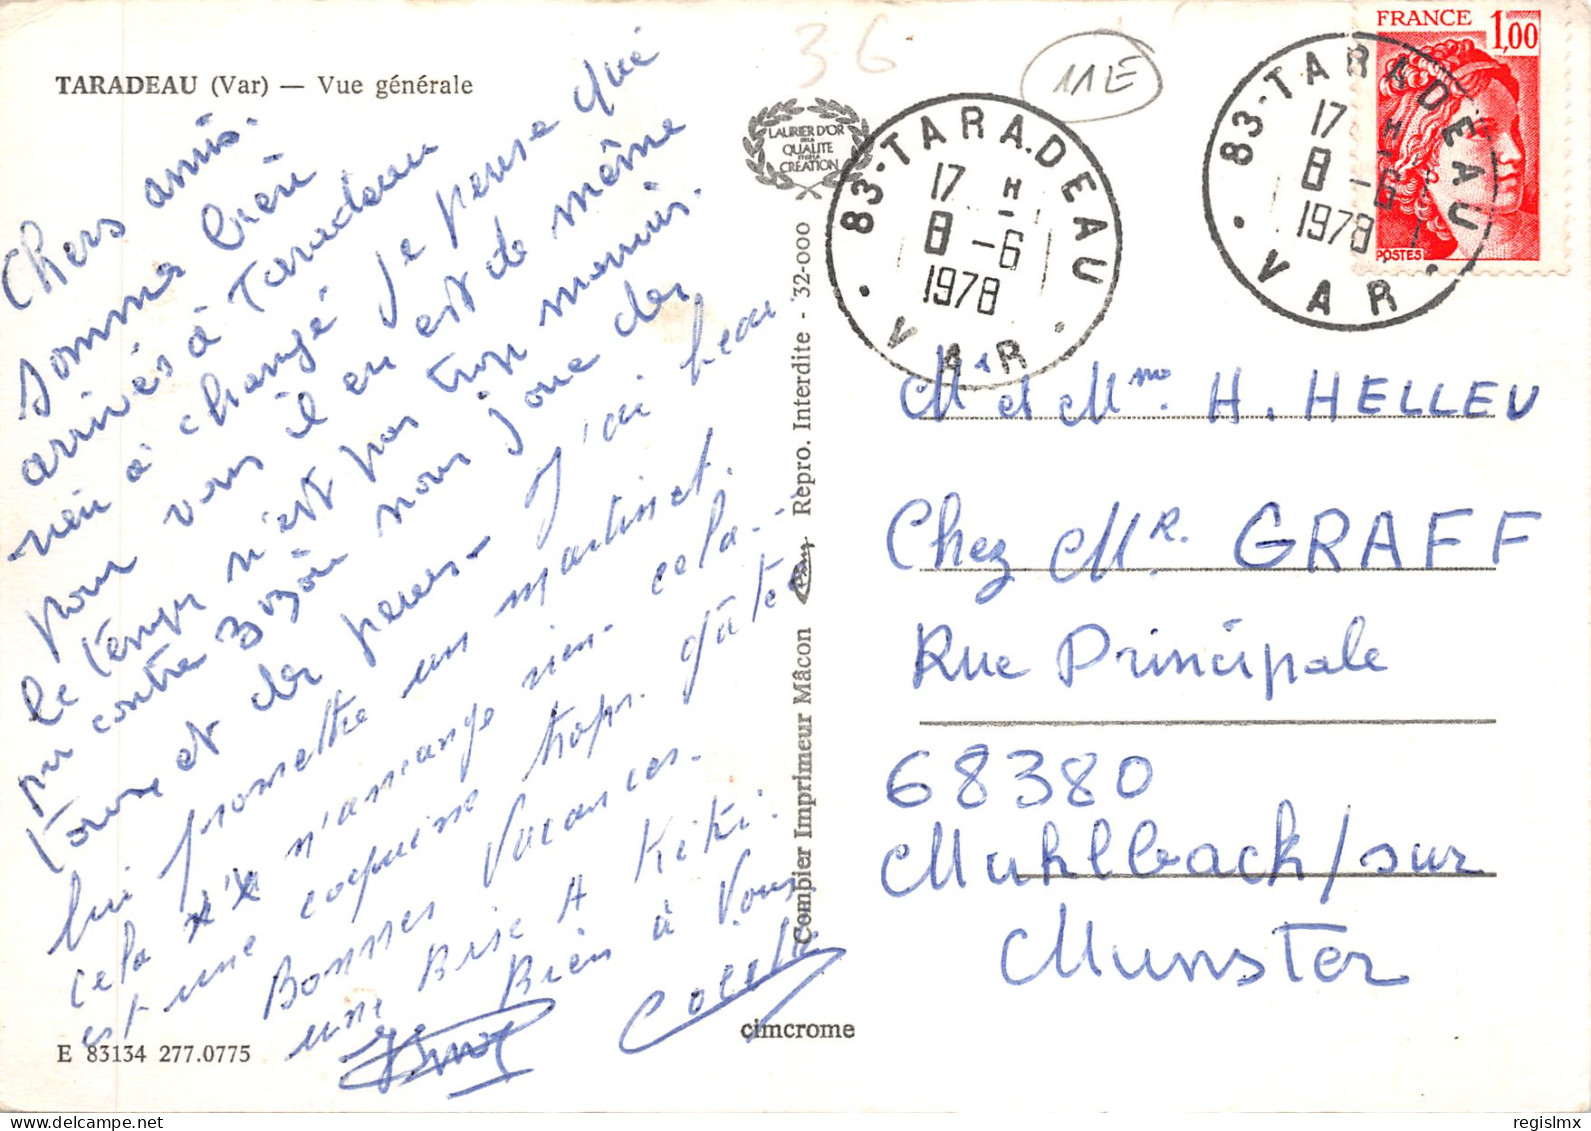 TARADEAU (Var) — Vue générale
Chers amis.
Somme bien
arrivés à Taradeau
rien a changé je pense que
pour vous il en est de même
le temps n'est pas trop mauvais.
par contre nous joue des
tours et des
J'ai beau
lui promettre un martinet.
cela n'arrange rien. cela..
est une coquine trop gâtée
Bonnes vacances.
une Bise A Kiki.
Bien à Vous
Colette
E 83134 277.0775
cimcrome
Combier Imprimeur Mâcon Repro. Interdite - 32-000
LAURIER D'OR
DE LA
QUALITE
ET DE LA
CREATION
36
11E
83-TARADEAU
17 H
8 -6
1978
VAR
83-TARADEAU
17 H
8 -6
1978
VAR
FRANCE 1,00
POSTES
Mr et Mme. H. HELLEU
Chez MR. GRAFF
Rue Principale
68380
Muhlback/sur
Munster
regislmx